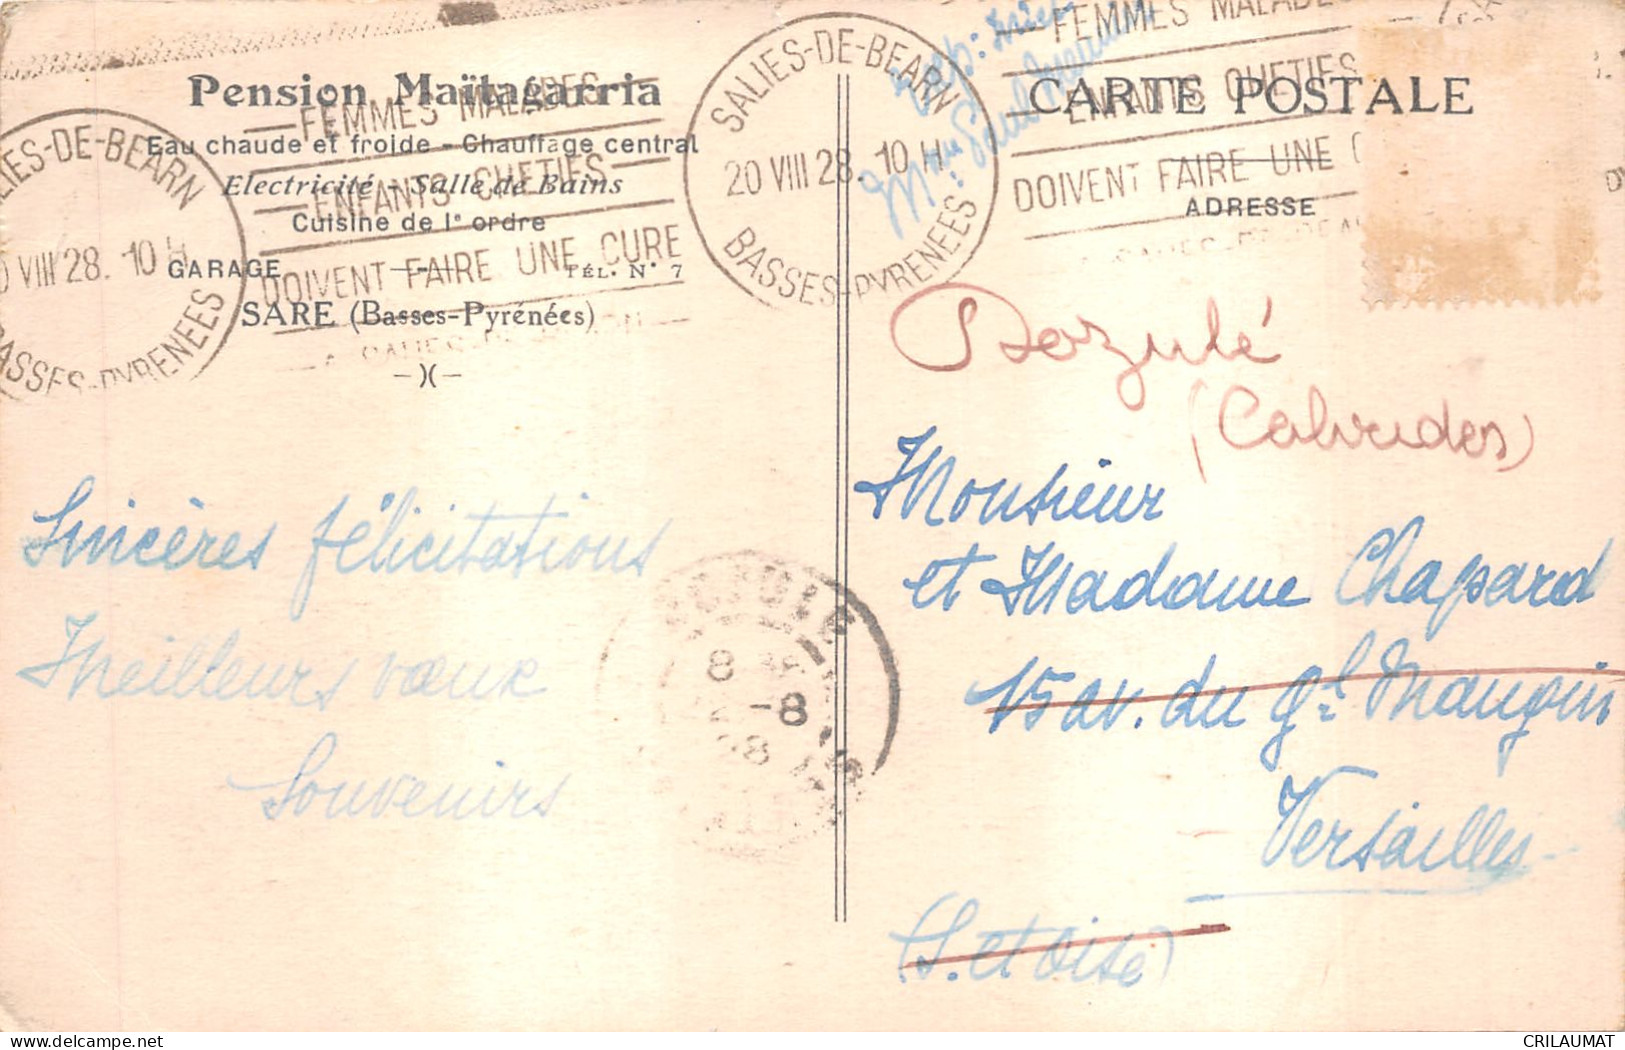 Pension Maïtagarria
Eau chaude et froide - Chauffage central
Electricité - Salle de Bains
Cuisine de 1e ordre
GARAGE TÉL. N° 7
SARE (Basses-Pyrénées)
SALIES-DE-BEARN
VIII 28. 10 H
BASSES-PYRENEES
FEMMES MALADES
ENFANTS CHETIFS
DOIVENT FAIRE UNE CURE
Sincères félicitations
Meilleurs vœux
Souvenirs
8
-8
SALIES-DE-BEARN
20 VIII 28. 10 H
BASSES-PYRENEES
FEMMES MALADES
ENFANTS CHETIFS
DOIVENT FAIRE UNE
CARTE POSTALE
ADRESSE
Dozulé
(Calvados)
Monsieur
et Madame Chapard
15 av. du Gl Mangin
Versailles
(S. et Oise)
CRILAUMAT